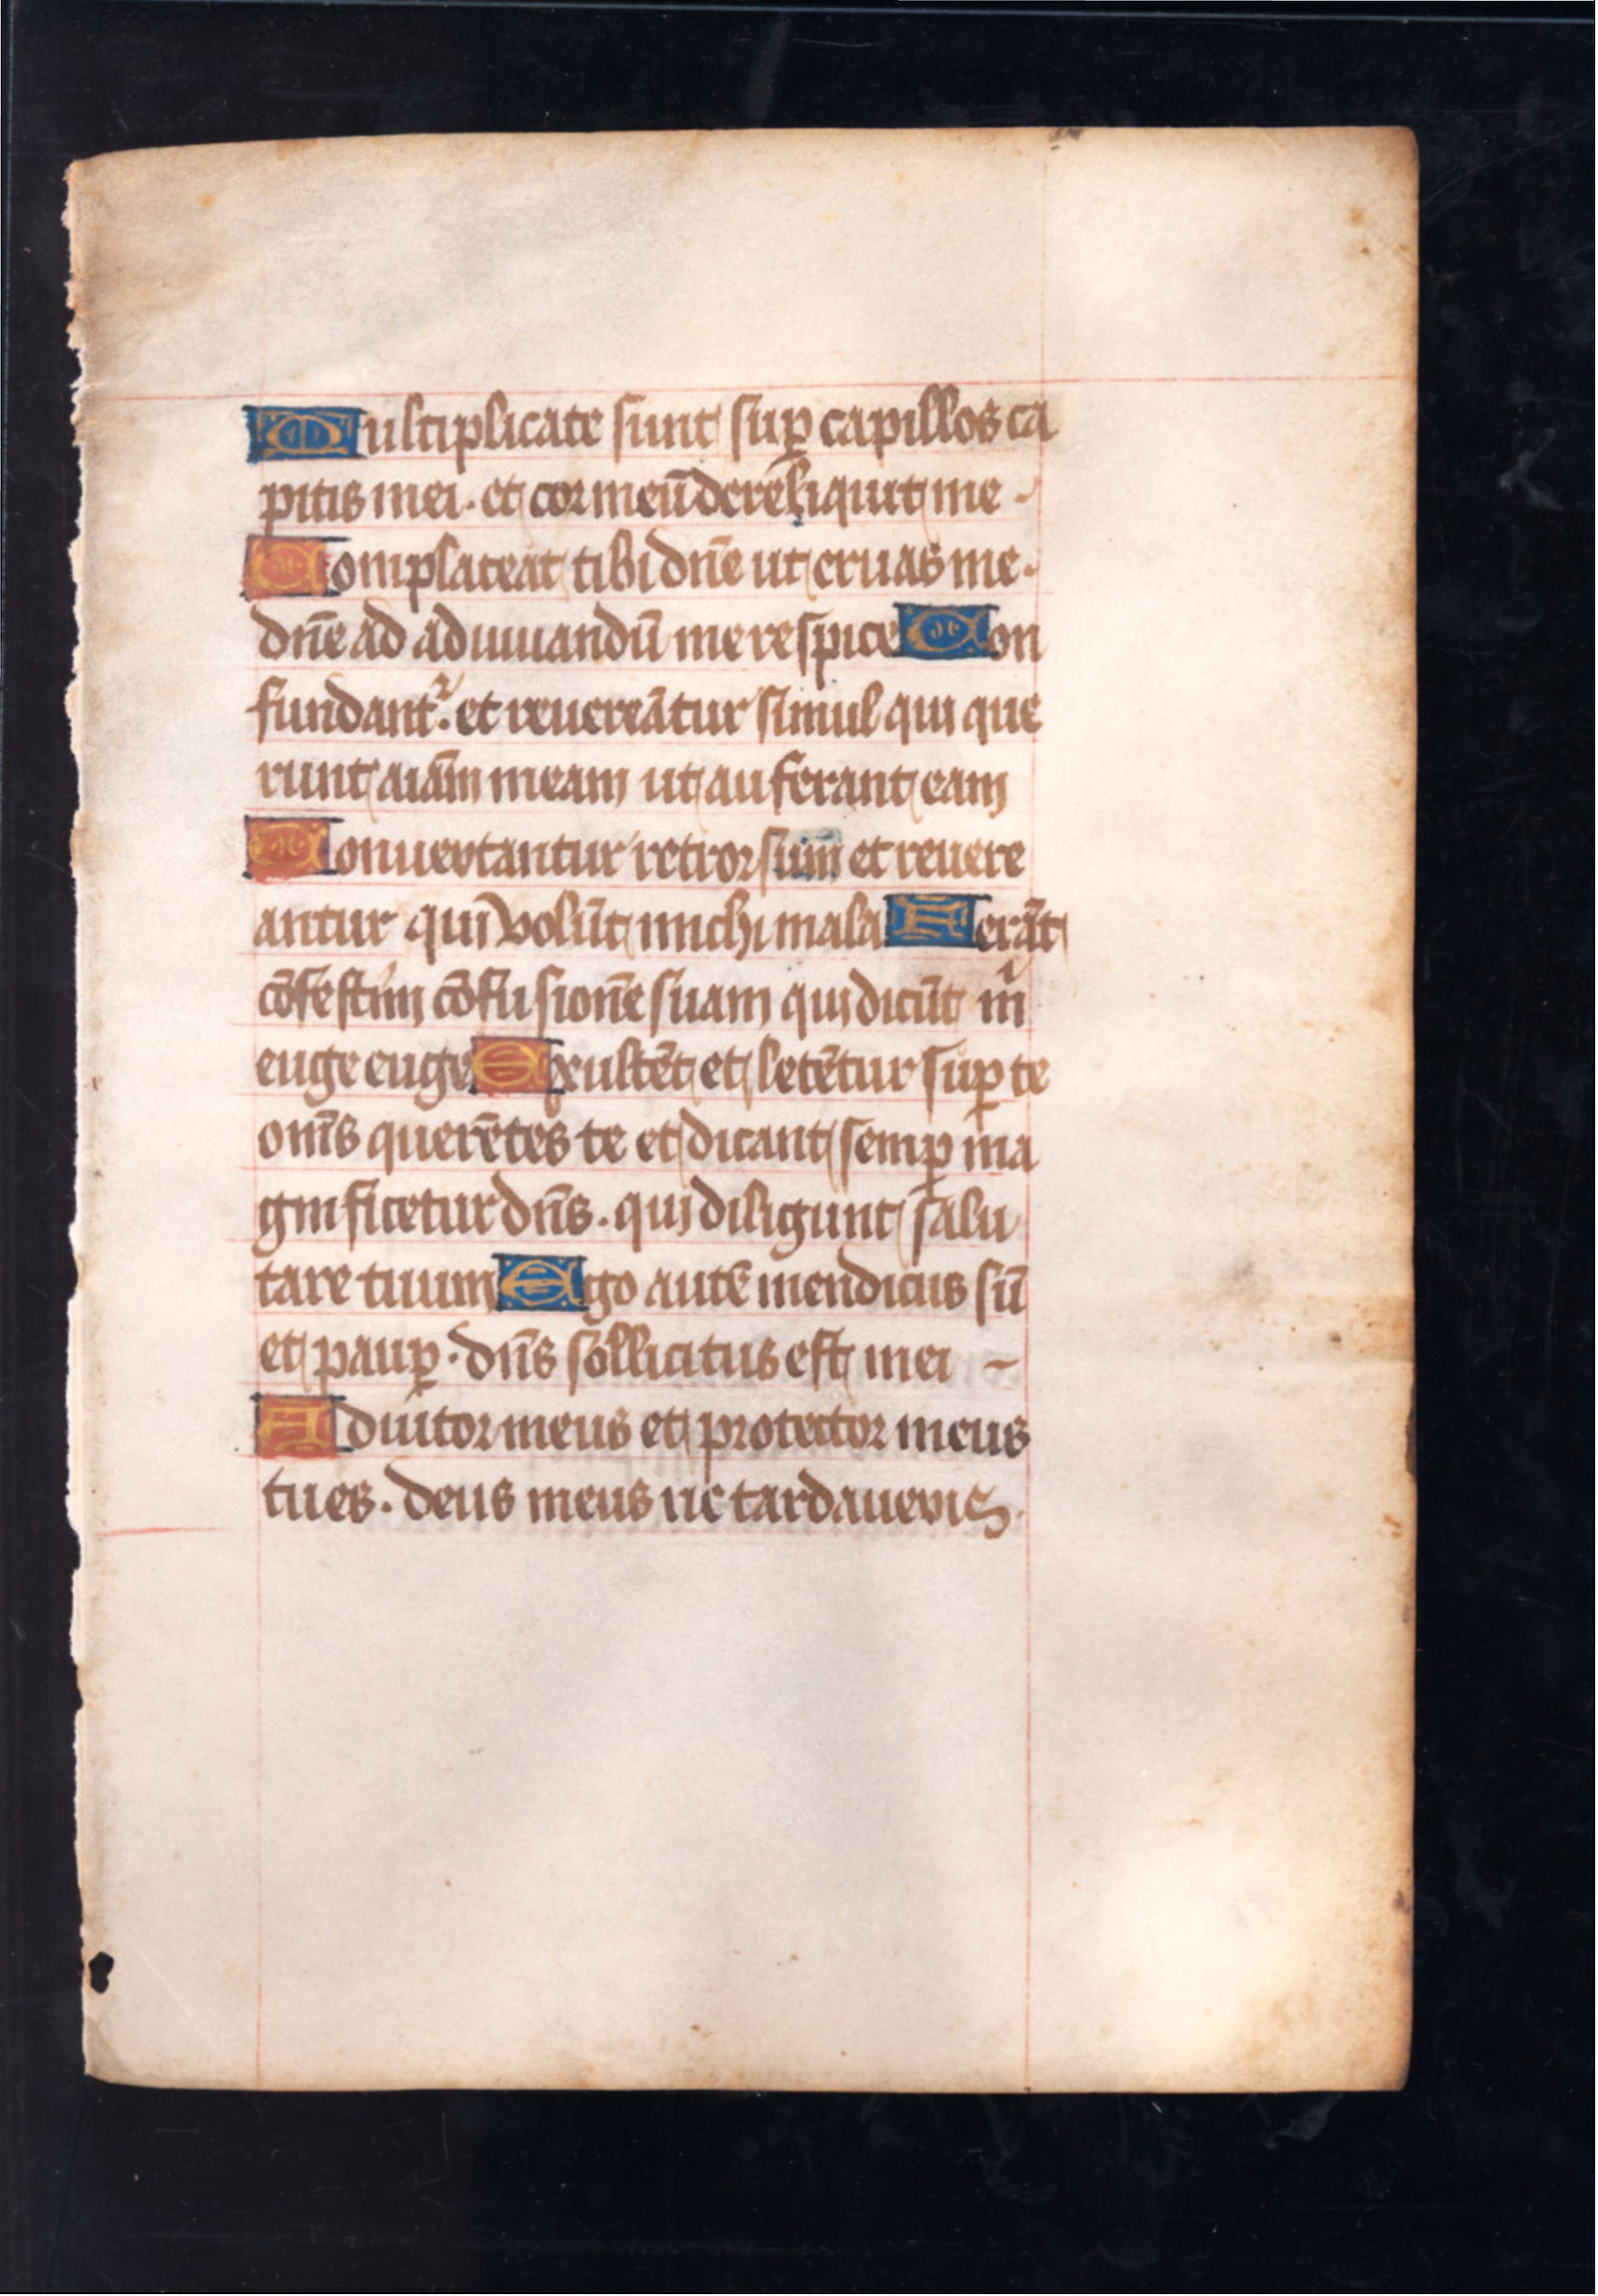 Multiplicate sunt sup̱ capillos ca
pitis mei · et cor meū dereliquit me ·
Complaceat tibi dn̄e ut eruas me ·
dn̄e ad adiuuandū me respice Con
fundantᷣ · et reuereātur simul qui que
runt aiam̄ meam ut auferant eam
Conuertantur retrorsum et reuere
antur qui volūt michi mala Ferāt
cōfestim cōfusionē suam qui dicūt mͥ
euge euge Exultēt et letētur sup̱ te
om̄s querētes te et dicant semp̱ ma
gnificetur dn̄s · qui diligunt salu
tare tuum Ego autē mendicus sū
et paup̱ · dn̄s sollicitus est mei ~
Adiutor meus et protector meus
tu es · deus meus ne tardaueris